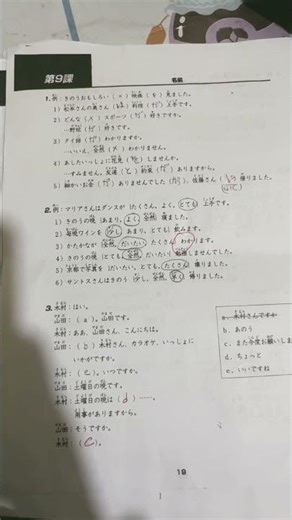 第9課
名前
1. 例：きのうおもしろい（×）映画（を）見ました。
1）松本さんの奥さん（は）料理（が）上手です。
2）どんな（×）スポーツ（が）好きですか。
…野球（が）好きです。
3）タイ語（が）わかりますか。
…いいえ、全然（×）わかりません。
4）あしたいっしょに花見（を）しませんか。
…すみません。友達（と）約束（が）ありますから。
5）細かいお金（が）ありませんでした（から）、佐藤さん（に）借りました。
2. 例：マリアさんはダンスが（たくさん、よく、とても）上手です。
1）きのうの晩（あまり、よく、全然）寝ました。
2）毎晩ワインを（少し、あまり、とても）飲みます。
3）かたかなが（全然、だいたい、たくさん）わかります。
4）きのうの晩（とても、全然、だいたい）勉強しませんでした。
5）京都で写真を（だいたい、とても、たくさん）撮りました。
6）サントスさんはきのう（少し、全然、早く）帰りました。
3.
木村：はい。
山田：（a）。山田です。
木村：ああ、山田さん、こんにちは。
山田：（b）木村さん、カラオケ、いっしょに
いかがですか。
木村：（e）。いつですか。
山田：土曜日の晩です。
木村：土曜日の晩は（d）……。
用事がありますから。
山田：そうですか。
木村：（c）。
a. 木村さんですか
b. あのう
c. また今度お願いしま
d. ちょっと
e. いいですね
19
1